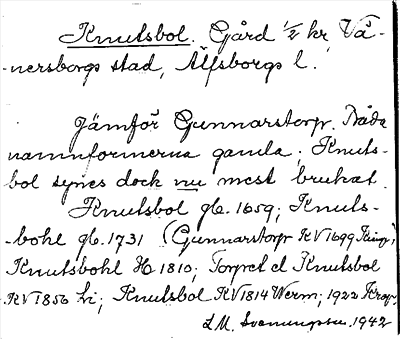 Knutsbol. Gård 1/2 kr, Vä-
-nersborgs stad, Älfsborgs l.
Jämför Gunnarstorp. Båda
namnformerna gamla; Knuts-
bol synes dock nu mest brukat.
Knutsbol gb. 1659; Knuts-
-bohl gb. 1731 (Gunnarstorp KV 1699
Knutsbohl H 1810; Torpet el Knutsbol
KV 1856 Lj; Knutsbol KV 1814 Werm; 1922
L.M. Svenungsson. 1942